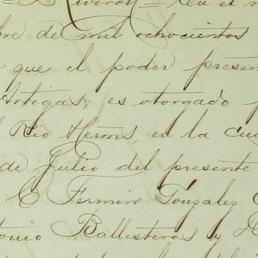 Riveros = En el
bre de mil ochocientos
que el poder presen
Artigas, es otorgado p
Rio Herms en la Ciu
de Julio del presente
C Fermin Gonzales
tonio Ballesteros y D